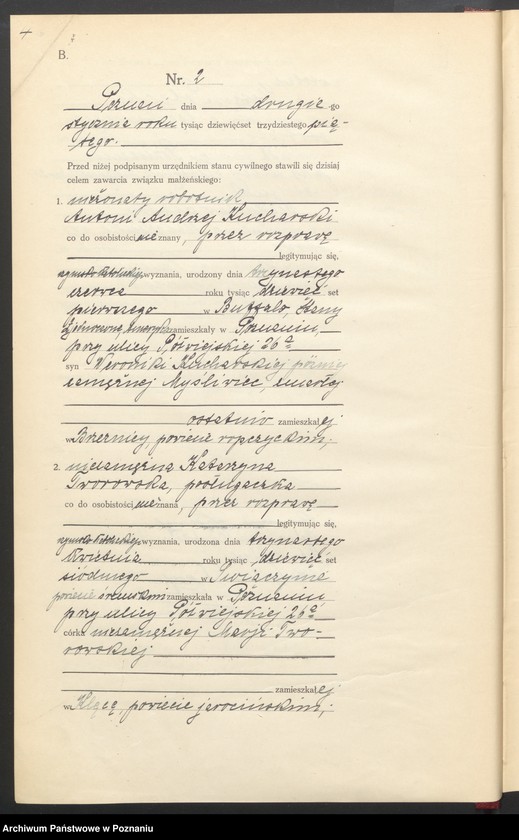 B.
Nr. 2
Poznań dnia drugiego
stycznia roku tysiąc dziewięćset trzydziestego pią-
tego.
Przed niżej podpisanym urzędnikiem stanu cywilnego stawili się dzisiaj
celem zawarcia związku małżeńskiego:
1. nieżonaty robotnik
Antoni Andrzej Kucharski
co do osobistości nieznany, przez rozprawę
legitymując się,
rzymsko-katolickiego wyznania, urodzony dnia trzynastego
czerwca roku tysiąc dziewięć set
pierwszego w Buffalo, Stany
Zjednoczone, zamieszkały w Poznaniu,
przy ulicy Półwiejskiej 26a
syn Weroniki Kucharskiej później
zamężnej Myśliwiec, zmarłej
ostatnio zamieszkałej
w Brzeźnicy, powiecie ropczyckim;
2. niezamężna Katarzyna
Tworowska, posługaczka
co do osobistości nieznana, przez rozprawę
legitymując się,
rzymsko-katolickiego wyznania, urodzona dnia trzynastego
kwietnia roku tysiąc dziewięć set
siódmego w Świączynie
powiecie śremskim zamieszkała w Poznaniu
przy ulicy Półwiejskiej 26a
córka niezamężnej Marji Two-
rowskiej
zamieszkałej
w powiecie jarocińskim;
Archiwum Państwowe w Poznaniu